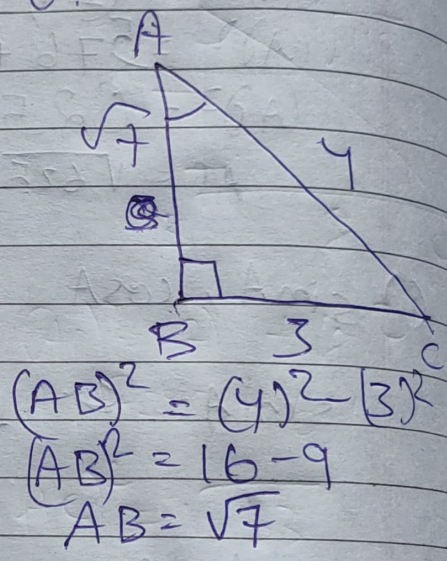 A
√7
4
B
3
C
(AB)² = (4)² - (3)²
(AB)² = 16 - 9
AB = √7